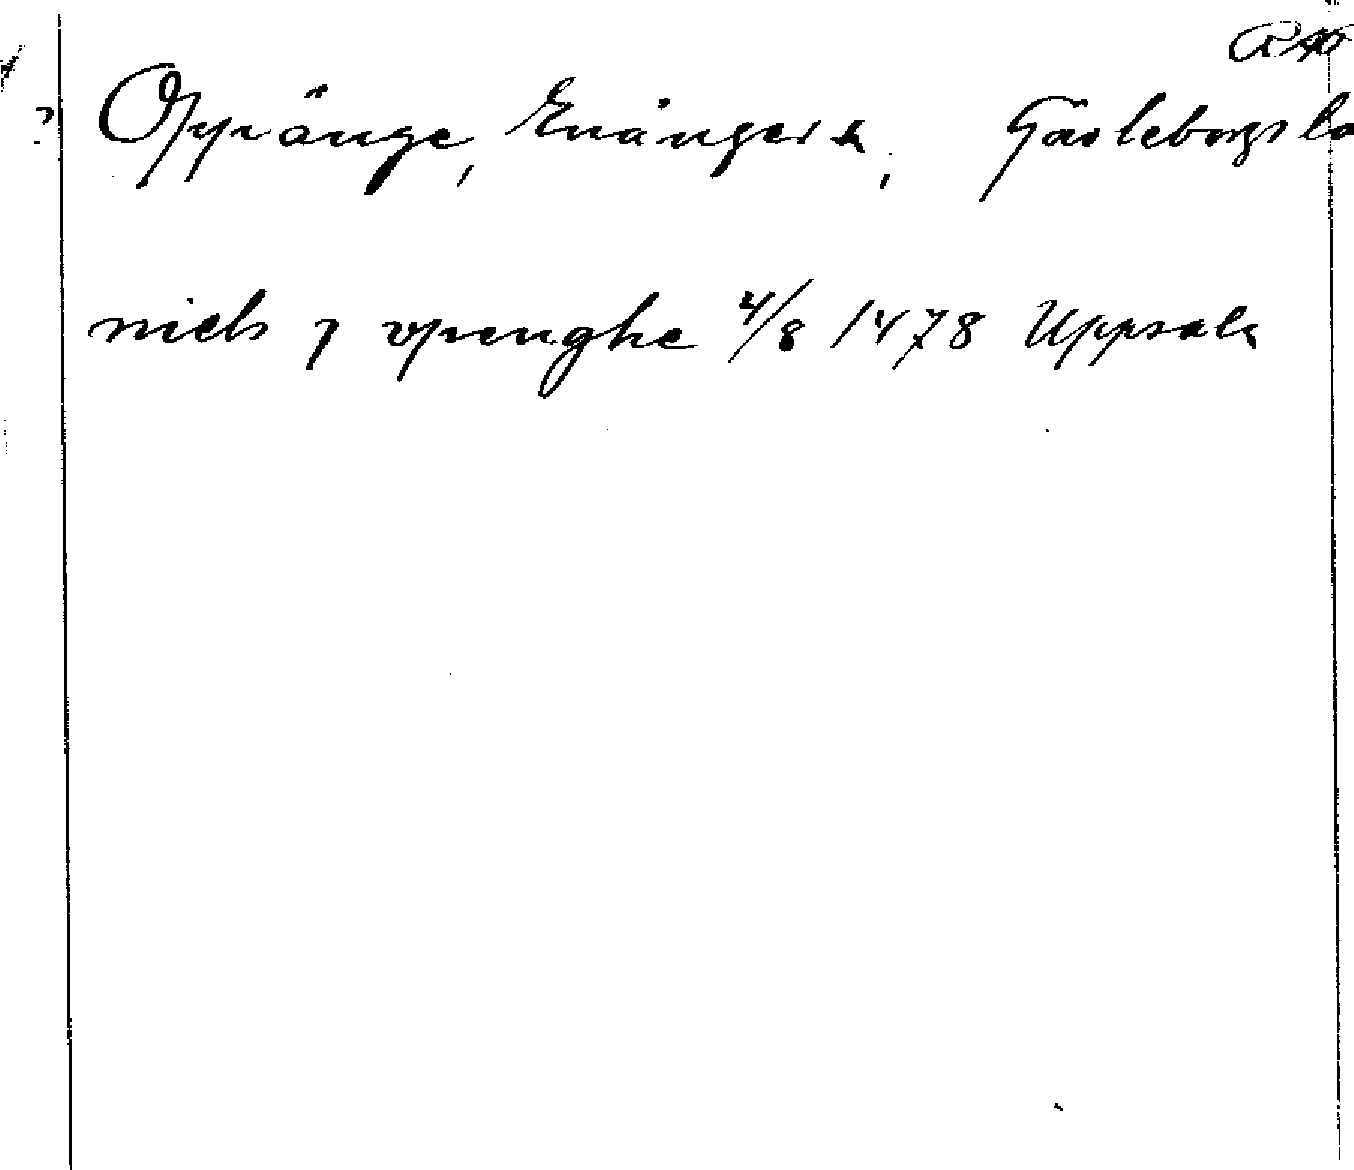 RAÖ
? Oppränge, Enångers sn, Gävleborgs lä
niels j vprenghe 4/8 1478 Uppsala